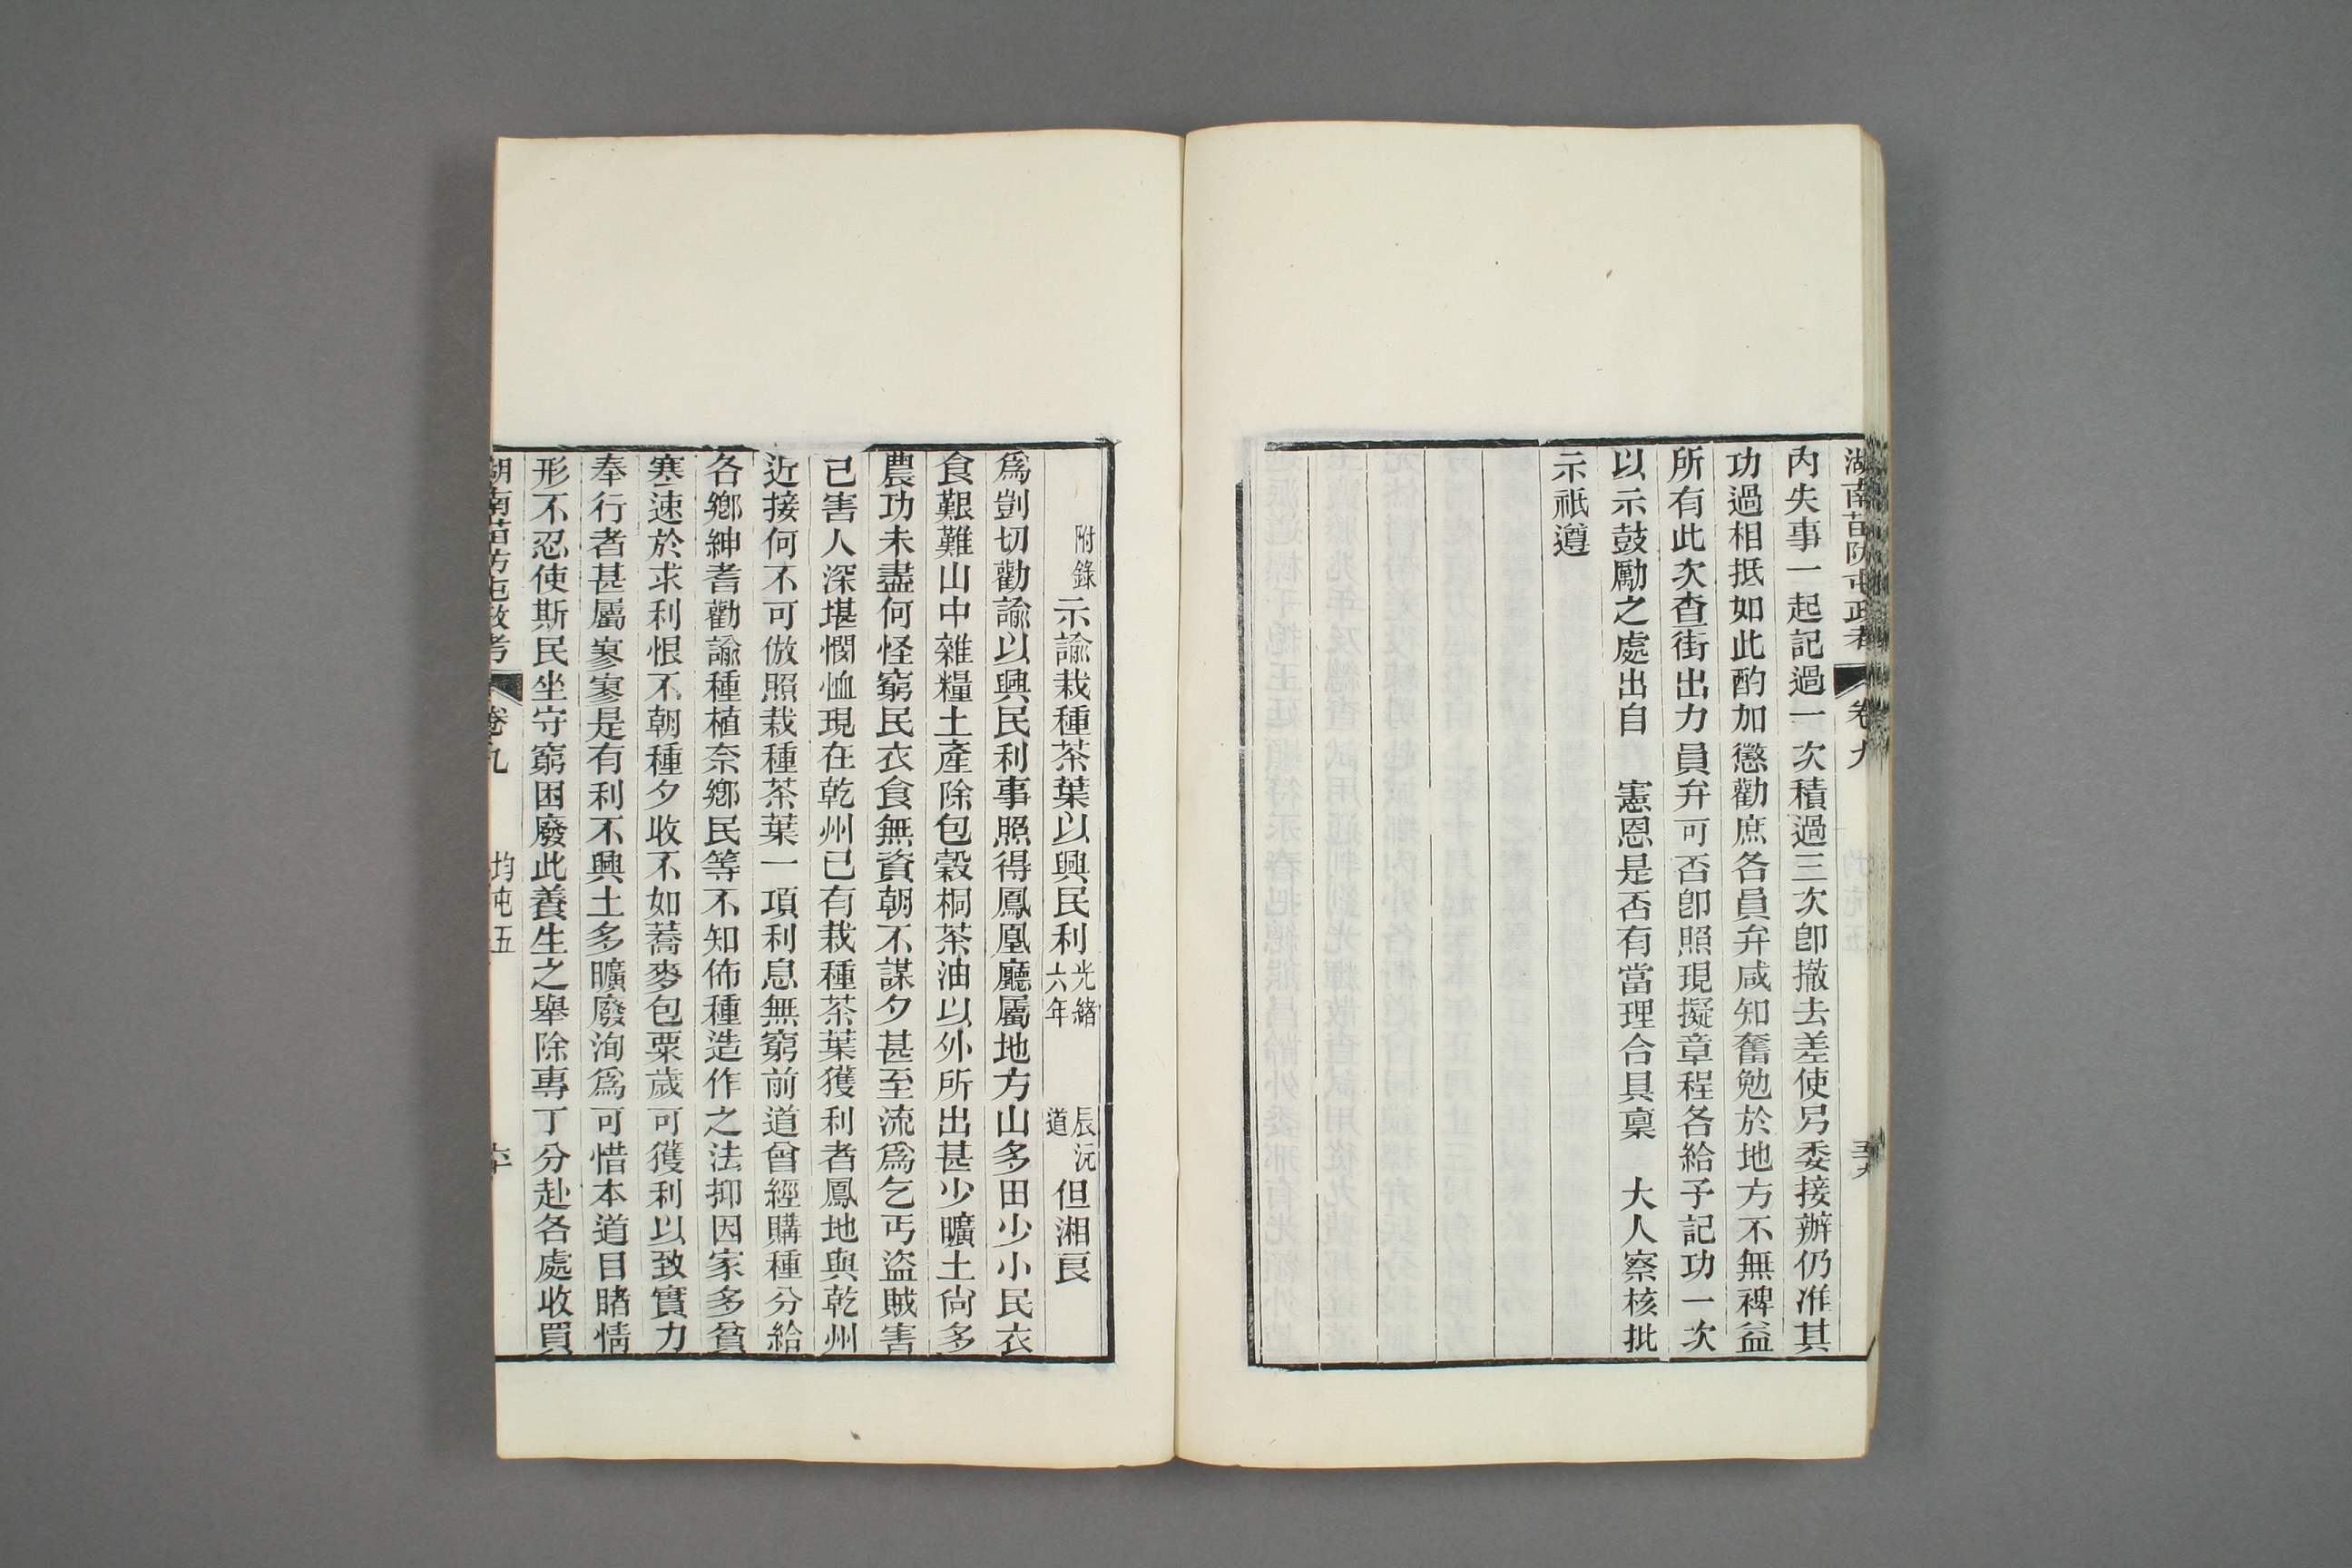 湖南苗防屯政考 卷九 五十九
內失事一起記過一次積過三次卽撤去差使另委接辦仍准其
功過相抵如此酌加懲勸庶各員弁咸知奮勉於地方不無裨益
所有此次查街出力員弁可否卽照現擬章程各給予記功一次
以示鼓勵之處出自 憲恩是否有當理合具稟 大人察核批
示祇遵
附錄示諭栽種茶葉以興民利光緒六年 辰沅道但湘良
爲剴切勸諭以興民利事照得鳳凰廳屬地方山多田少小民衣
食艱難山中雜糧土產除包穀桐茶油以外所出甚少曠土尙多
農功未盡何怪窮民衣食無資朝不謀夕甚至流爲乞丐盜賊害
己害人深堪憫恤現在乾州已有栽種茶葉獲利者鳳地與乾州
近接何不可倣照栽種茶葉一項利息無窮前道曾經購種分給
各鄉紳耆勸諭種植奈鄉民等不知佈種造作之法抑因家多貧
寒速於求利恨不朝種夕收不如蕎麥包粟歲可獲利以致實力
奉行者甚屬寥寥是有利不興土多曠廢洵爲可惜本道目睹情
形不忍使斯民坐守窮困廢此養生之舉除專丁分赴各處收買
湖南苗防屯政考 卷九 均屯五 六十